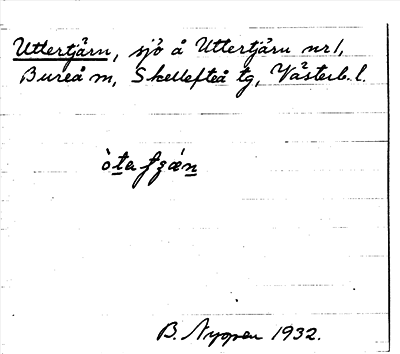 Uttertjärn, sjö å Uttertjärn nr 1,
Bureå m, Skellefteå tg, Västerb. l.
B. Nygren 1932.